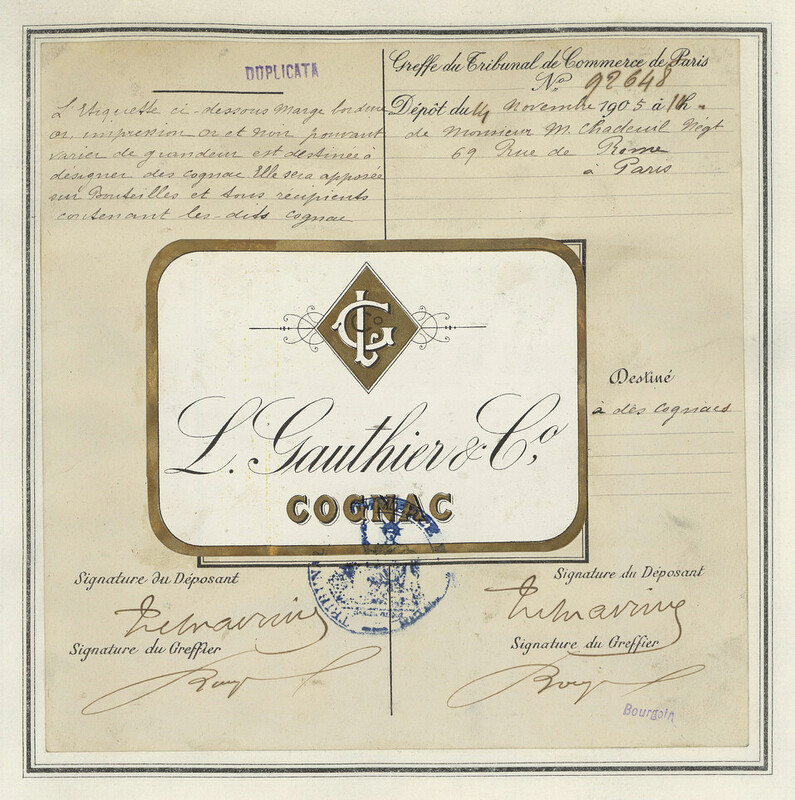 DUPLICATA
L'Etiquette ci-dessous Marge bordure
or, impression or et noir pouvant
varier de grandeur est destinée à
désigner des cognac Elle sera apposée
sur Bouteilles et tous récipients
contenant les-dits cognac
Greffe du Tribunal de Commerce de Paris
No 92648
Dépôt du 14 Novembre 1905 à 11h
de Monsieur M. Chadeuil Négt
69 Rue de Rome
à Paris
LG Co
L. Gauthier & Co,
COGNAC
Destiné
à des cognacs
Signature du Déposant
Signature du Greffier
Signature du Déposant
Signature du Greffier
Bourgoin